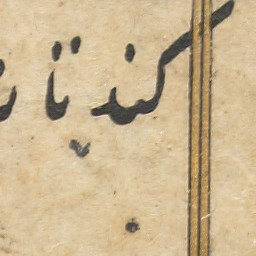 کند تا